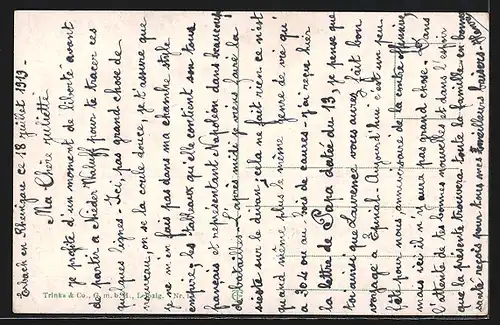 Erbach en Rheingau ce 18 juillet 1919 -
Ma Chère Juliette
Je profite d'un moment de liberté avant
de partir à Nieder Waluff pour te tracer ces
quelques lignes - Ici, pas grand chose de
nouveau, on se la coule douce, je t'assure que
je ne m'en fais pas dans ma chambre style
empire, les tableaux qu'elle contient son tous
français et représentant Napoléon dans beaucoup
de batailles - L'après midi je viens faire la
sieste sur le divan ; cela ne fait rien ce n'est
quand même plus le même genre de vie qu'
à 304 ou au bois de caures - J'ai reçu hier
la lettre de Papa datée du 13, je pense que
toi ainsi que Laurence vous aurez fait bon
voyage à Epinal. Aujourd'hui c'est un peu
fête pour nous, anniversaire de la contre offensive,
mais ici il n'y aura pas grand chose. Dans
l'attente de tes bonnes nouvelles et dans l'espoir
que la présente trouvera toute la famille en bonne
santé reçois pour tous mes meilleurs baisers - Henri
Trinks & Co., G. m. b. H., Leipzig. Nr.